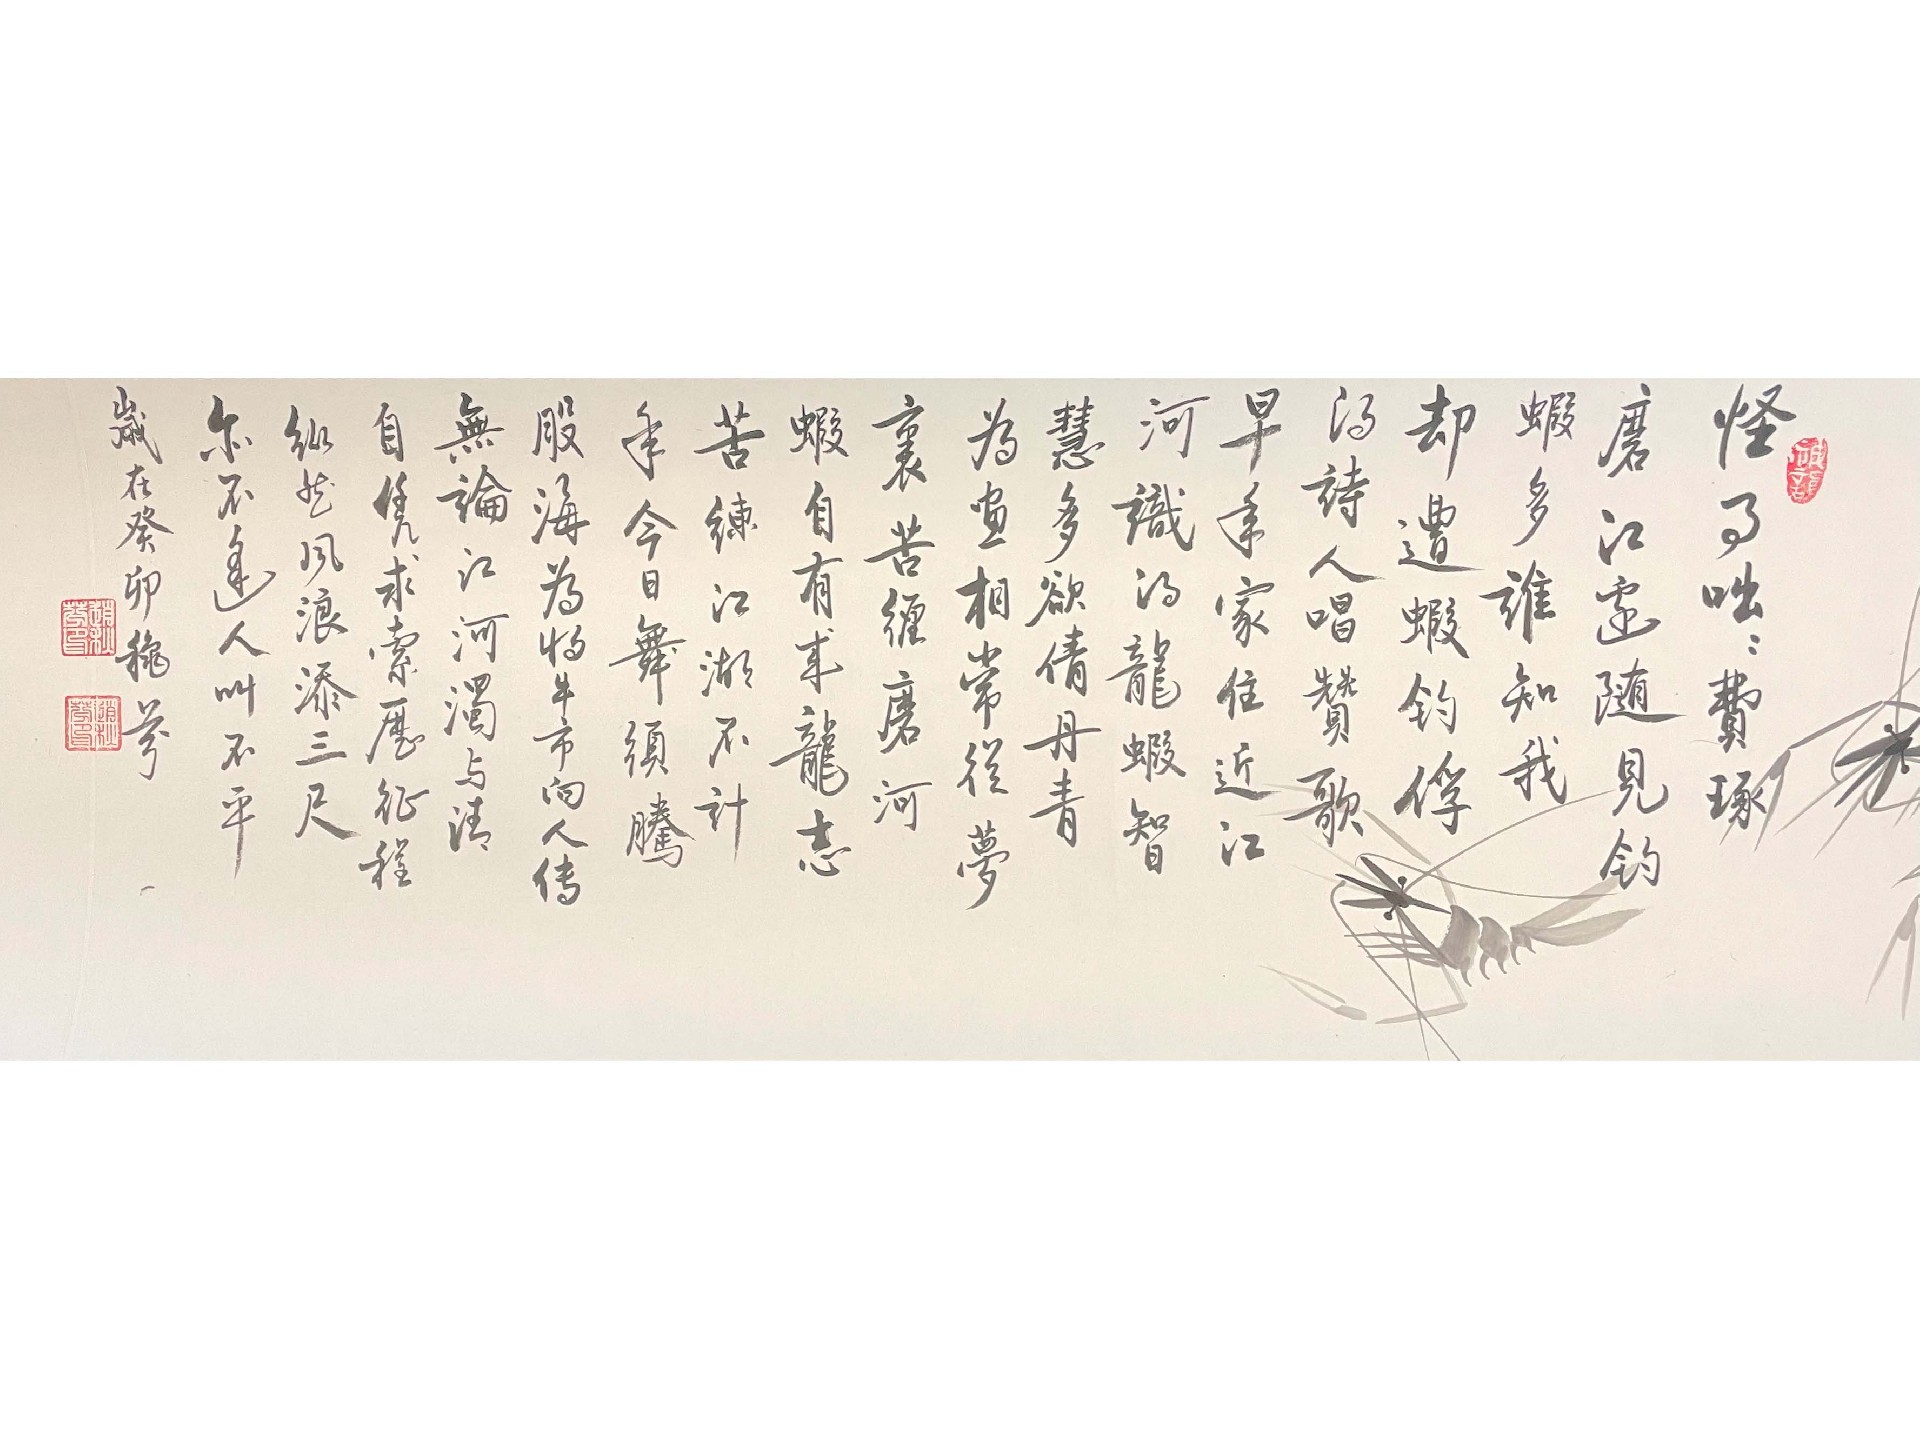 怪事咄〻費琢
磨江邊隨見釣
蝦多誰知我
却遭蝦釣俘
得詩人唱贊歌
早年家住近江
河識得龍蝦智
慧多欲倩丹青
為画相常從夢
裏苦纏磨河
蝦自有成龍志
苦練江湖不計
年今日舞須騰
股海為將牛市向人傳
無論江河濁与清
自凭求索歷征程
縱然風浪添三尺
亦不逢人叫不平
歲在癸卯穐芬